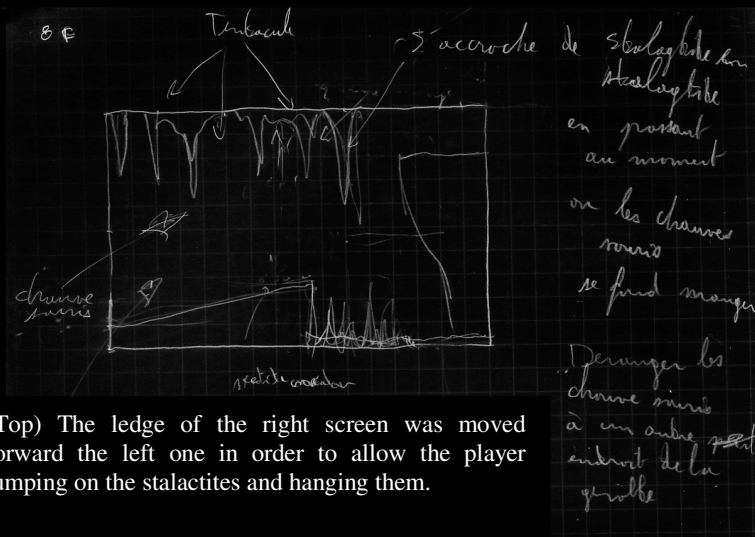 8 F
Tentacule
- S'accroche de stalagtite en
stalagtite
en passant
au moment
ou les chauves
souris
se fond manger
chauve
souris
Deranger les
chauve souris
à un autre
endroit de la
grotte
Top) The ledge of the right screen was moved
orward the left one in order to allow the player
umping on the stalactites and hanging them.